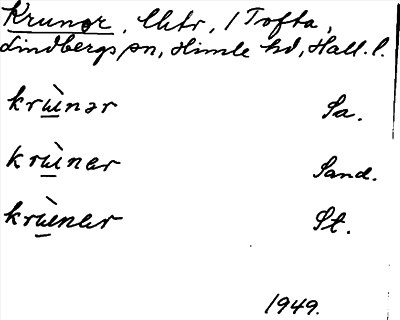 Krunor, Uktr, 1 Tofta,
Lindbergs sn, Himle hd, Hall. l.
krùnər Sa.
krùnar Sand.
krùenar St.
1949.